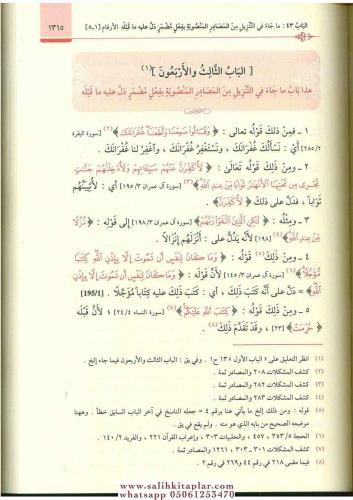 الباب ٤٣ : ما جاء في التنزيل من المصادر المنصوبة بفعل مضمر دل عليه ما قبله الأرقام [١-٥]
١٣١٥
[ البَابُ الثَّالِثُ والأَرْبَعُونَ ](١)
هذا بَابُ ما جَاءَ في التَّنْزِيلِ مِنَ المَصَادِرِ المَنْصُوبَةِ بِفِعْلٍ مُضْمَرٍ دَلَّ عليه ما قَبْلَهُ
١ - فَمِنْ ذلك قَوْلُهُ تعالى : ﴿ وَقَالُوا سَمِعْنَا وَأَطَعْنَا غُفْرَانَكَ ﴾(٢) [سورة البقرة
٢٨٥/٢] أي : نَسْأَلُكَ غُفْرَانَكَ ، ونَسْتَغْفِرُ غُفْرَانَكَ ، واغْفِرْ لنا غُفْرَانَكَ .
٢ - ومِنْ ذلك قَوْلُهُ تَعَالَىٰ : ﴿ لَأُكَفِّرَنَّ عَنْهُمْ سَيِّئَاتِهِمْ وَلَأُدْخِلَنَّهُمْ جَنَّاتٍ
تَجْرِي مِن تَحْتِهَا الْأَنْهَارُ ثَوَابًا مِّنْ عِندِ اللَّهِ ﴾(٣) [سورة آل عمران ١٩٥/٣] أي : لأُثِيبَنَّهُم
ثَوَاباً ، فدَلَّ على ذلك ﴿ لَأُكَفِّرَنَّ ﴾ .
٣ - ومِثْلُهُ : ﴿ لَكِنِ الَّذِينَ اتَّقَوْا رَبَّهُمْ ﴾ [سورة آل عمران ١٩٨/٣] إلى قَوْلِهِ : ﴿ نُزُلًا
مِّنْ عِندِ اللَّهِ ﴾(٤) [١٩٨] لأَنَّهُ يَدُلُّ على : أَنْزَلَهُم إنْزَالًا .
٤ - ومِنْ ذلك(٥) قَوْلُهُ : ﴿ وَمَا كَانَ لِنَفْسٍ أَن تَمُوتَ إِلَّا بِإِذْنِ اللَّهِ كِتَابًا
مُّؤَجَّلًا ﴾(٦) [سورة آل عمران ١٤٥/٣] لأنَّ قَوْلَهُ : ﴿ وَمَا كَانَ لِنَفْسٍ أَن تَمُوتَ إِلَّا بِإِذْنِ
اللَّهِ ﴾ = دَلَّ على أنَّه كَتَبَ ذلك ، أي : كَتَبَ ذلك عليه كِتَاباً مُؤَجَّلًا . [195/1]
٥ - ومِنْ ذلك قَوْلُهُ : ﴿ كِتَابَ اللَّهِ عَلَيْكُمْ ﴾(٧) [سورة النساء ٢٤/٤] ؛ لأنَّ قَبْلَهُ
﴿ حُرِّمَتْ ﴾ [٢٣] ، وقد تَقَدَّمَ ذلك(٨) .
(١) انظر التعليق على « الباب الأول » ١٣٥ ح١ . وفي ق : الباب الثالث والأربعون فيما جاء إلخ .
(٢) كشف المشكلات ٢٠٨ والمصادر ثمة .
(٣) كشف المشكلات ٢٨٢ والمصادر ثمة .
(٤) كشف المشكلات ٢٨٣ والمصادر ثمة .
(٥) قوله : ومن ذلك إلخ ما يأتي هنا برقم ٤ = جعله الناسخ في آخر الباب السابق خطأ . وههنا
موضعه الصحيح من بابه الذي هو منه . ولم يقع في ق .
(٦) الحجة ٣٥٣/٥ ، ٤٥٧ ، والحلبيات ٣٠٣ ، وإعراب القرآن ٢٢١ ، والفريد ١٤٠/٢ .
(٧) كشف المشكلات ٣٠١ ـ ٣٠٣ ، ١٢٦١ والمصادر ثمة .
(٨) فيما مضى ٢١٨ في رقم ٤٤ و٢٦٩ في رقم ٢ .
www.salihkitaplar.com
whatsapp 05061253470